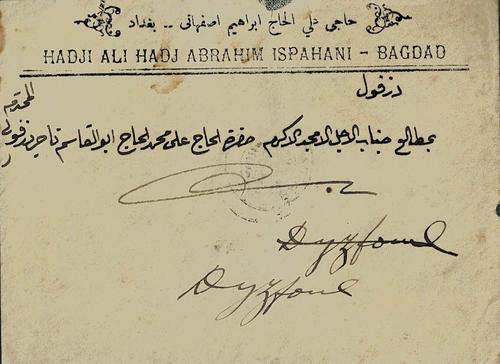 حاجی علی الحاج ابراهیم اصفهانی .. بغداد
HADJI ALI HADJ ABRAHIM ISPAHANI – BAGDAD
دزفول
بمطالع جناب الاجل الامجد الاكرم حضرة الحاج علی محمد الحاج ابو القاسم تاجر دزفولی
المحترم
Dyzfoul
Dyzfoul